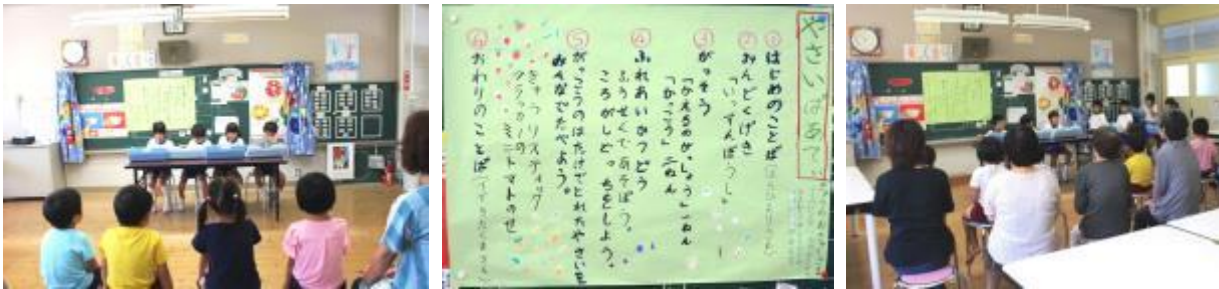 やさいぱあてぃ
① はじめのことば
② おんどくげき
「いっすんぼうし」
③ がっそう
「かえるのがっしょう」一ねん
「かっこう」二ねん
④ ふれあいかつどう
ふうせんであそぼう。
ころがしどっちをしよう。
⑤ がっこうのはたけでとれたやさいを
みんなでたべよう。
きゅうりスティック
クラッカーの
ミニトマトのせ
⑥ おわりのことば